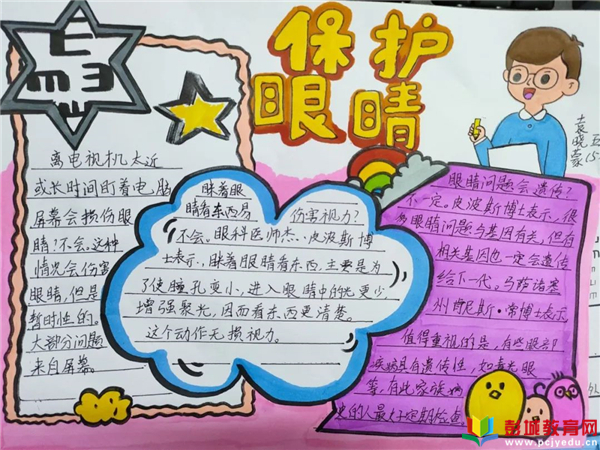 保护
眼睛
E
m
3
离电视机太近
或长时间盯着电脑
屏幕会损伤眼
睛？不会.这种
情况会伤害
眼睛，但是
暂时性的。
大部分问题
来自屏幕.
眯着眼
睛看东西易
伤害视力？
不会。眼科医师杰..皮波斯博
士表示.眯着眼睛看东西，主要是为
了使瞳孔变小，进入眼睛中的光更少，
增强聚光，因而看东西更清楚。
这个动作无损视力。
眼睛问题会遗传？
不一定。皮波斯博士表示，很
多眼睛问题与基因有关，但有
相关基因也一定会遗传
给下一代。马萨诸塞
州 尼斯·常博士表示
值得重视的是，有些眼部
疾病具有遗传性，如青光眼
等，有此家族病
史的人最好定期检查
袁
晓
蒙
五
(5
彭城教育网
www.pcjyedu.cn